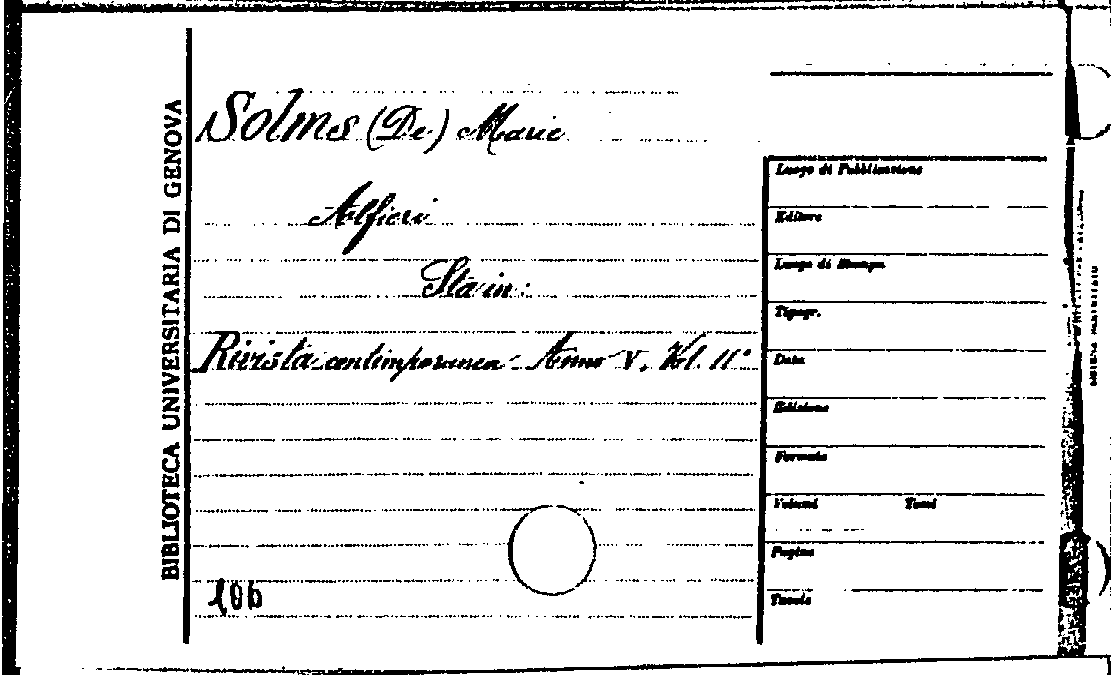 BIBLIOTECA UNIVERSITARIA DI GENOVA
Solms (De) Marie
Alfieri
Sta in:
Rivista contimporanea - Anno V, Vol. 11°
10b
Luogo di Pubblicazione
Editore
Luogo di Stampa
Tipogr.
Data
Edizione
Formato
Volumi Tomi
Pagine
Tavole